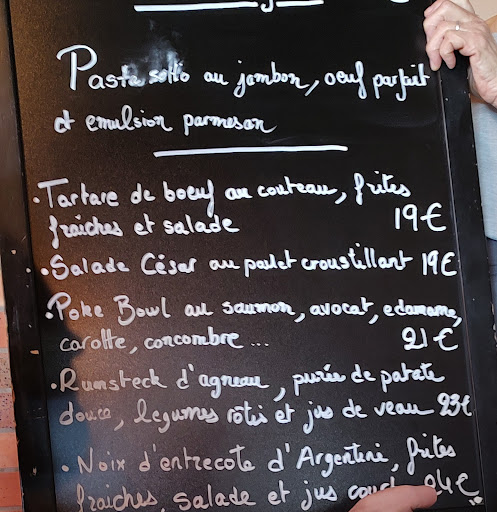 Pasta sotto au jambon, oeuf parfait
et emulsion parmesan
• Tartare de boeuf au couteau, frites
fraîches et salade 19€
• Salade César au poulet croustillant 19€
• Poke Bowl au saumon, avocat, edamame,
carotte, concombre ... 21€
• Rumsteck d'agneau, purée de patate
douce, légumes rôtis et jus de veau 23€
• Noix d'entrecote d'Argentine, frites
fraîches, salade et jus 24€